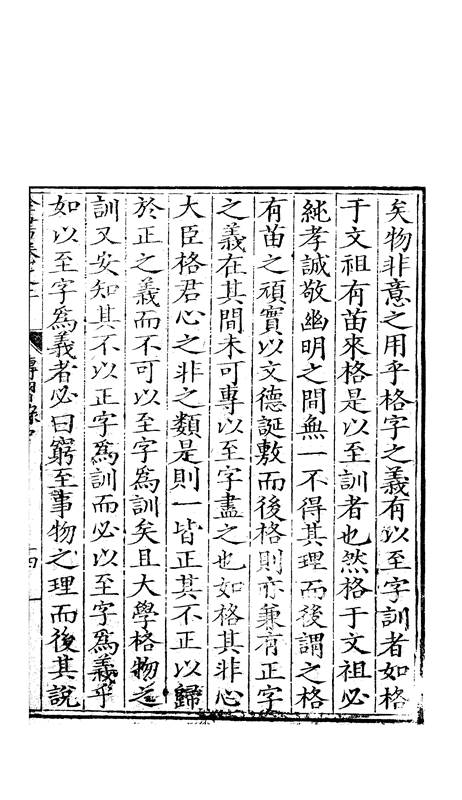 矣物非意之用乎格字之義有以至字訓者如格
于文祖有苗來格是以至訓者也然格于文祖必
純孝誠敬幽明之間無一不得其理而後謂之格
有苗之頑實以文德誕敷而後格則亦兼有正字
之義在其間未可專以至字盡之也如格其非心
大臣格君心之非之類是則一皆正其不正以歸
於正之義而不可以至字爲訓矣且大學格物之
訓又安知其不以正字爲訓而必以至字爲義乎
如以至字爲義者必曰窮至事物之理而後其說